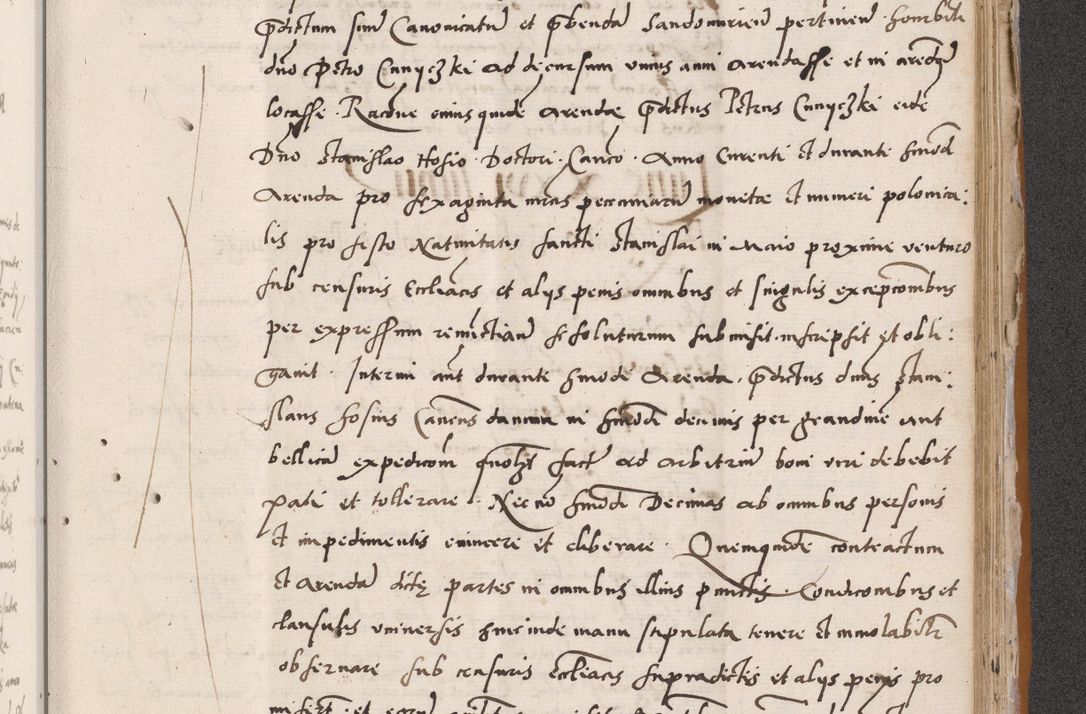 p̄dictum suū Canonicatū et p̄bendā Sandomirien̄ pertinen̄ · honībili
dn̄o Petro Cunyczki ad decursum unius anni arendasse et in arendā
locasse · Racōne cuius quidē arendæ p̄dictus Petrus Cunyczki eidē
Dn̄o Stanislao Hosio · Doctori · Canco · Anno Curenti et durante hm̄oi
Arenda pro sexaginta mrcis pecuniarū monetæ et numeri polonica:
lis pro festo Nativitatis sancti Stanislai in Maio proxime venturo
sub censuris Eccliacis et alys penis omnibus et singulis excepcionibus
per expressum remictian̄ se soluturum submisit · inscripsit et obli:
gavit · Interim aut̄ durante hm̄odi Arenda · p̄dictus dnūs Stani:
slaus Hosius Canc̄us damna in hm̄odi decimis per grandinē aut
bellicā expedicōm̄ quōlz fact̄ ad arbitriū boni viri debebit
pati et tollerare · Nec nō hm̄odi Decimas ab omnibus personis
et impedimentis evincere et eliberare · Quemquidē contractum
et Arendā dicte partes in omnibus illius punctis · Condicōnibus et
clausulis universis hincinde manu stipulata tenere et inviolabilr̄
observare sub censuris eccliacis supradictis et alys penis pro